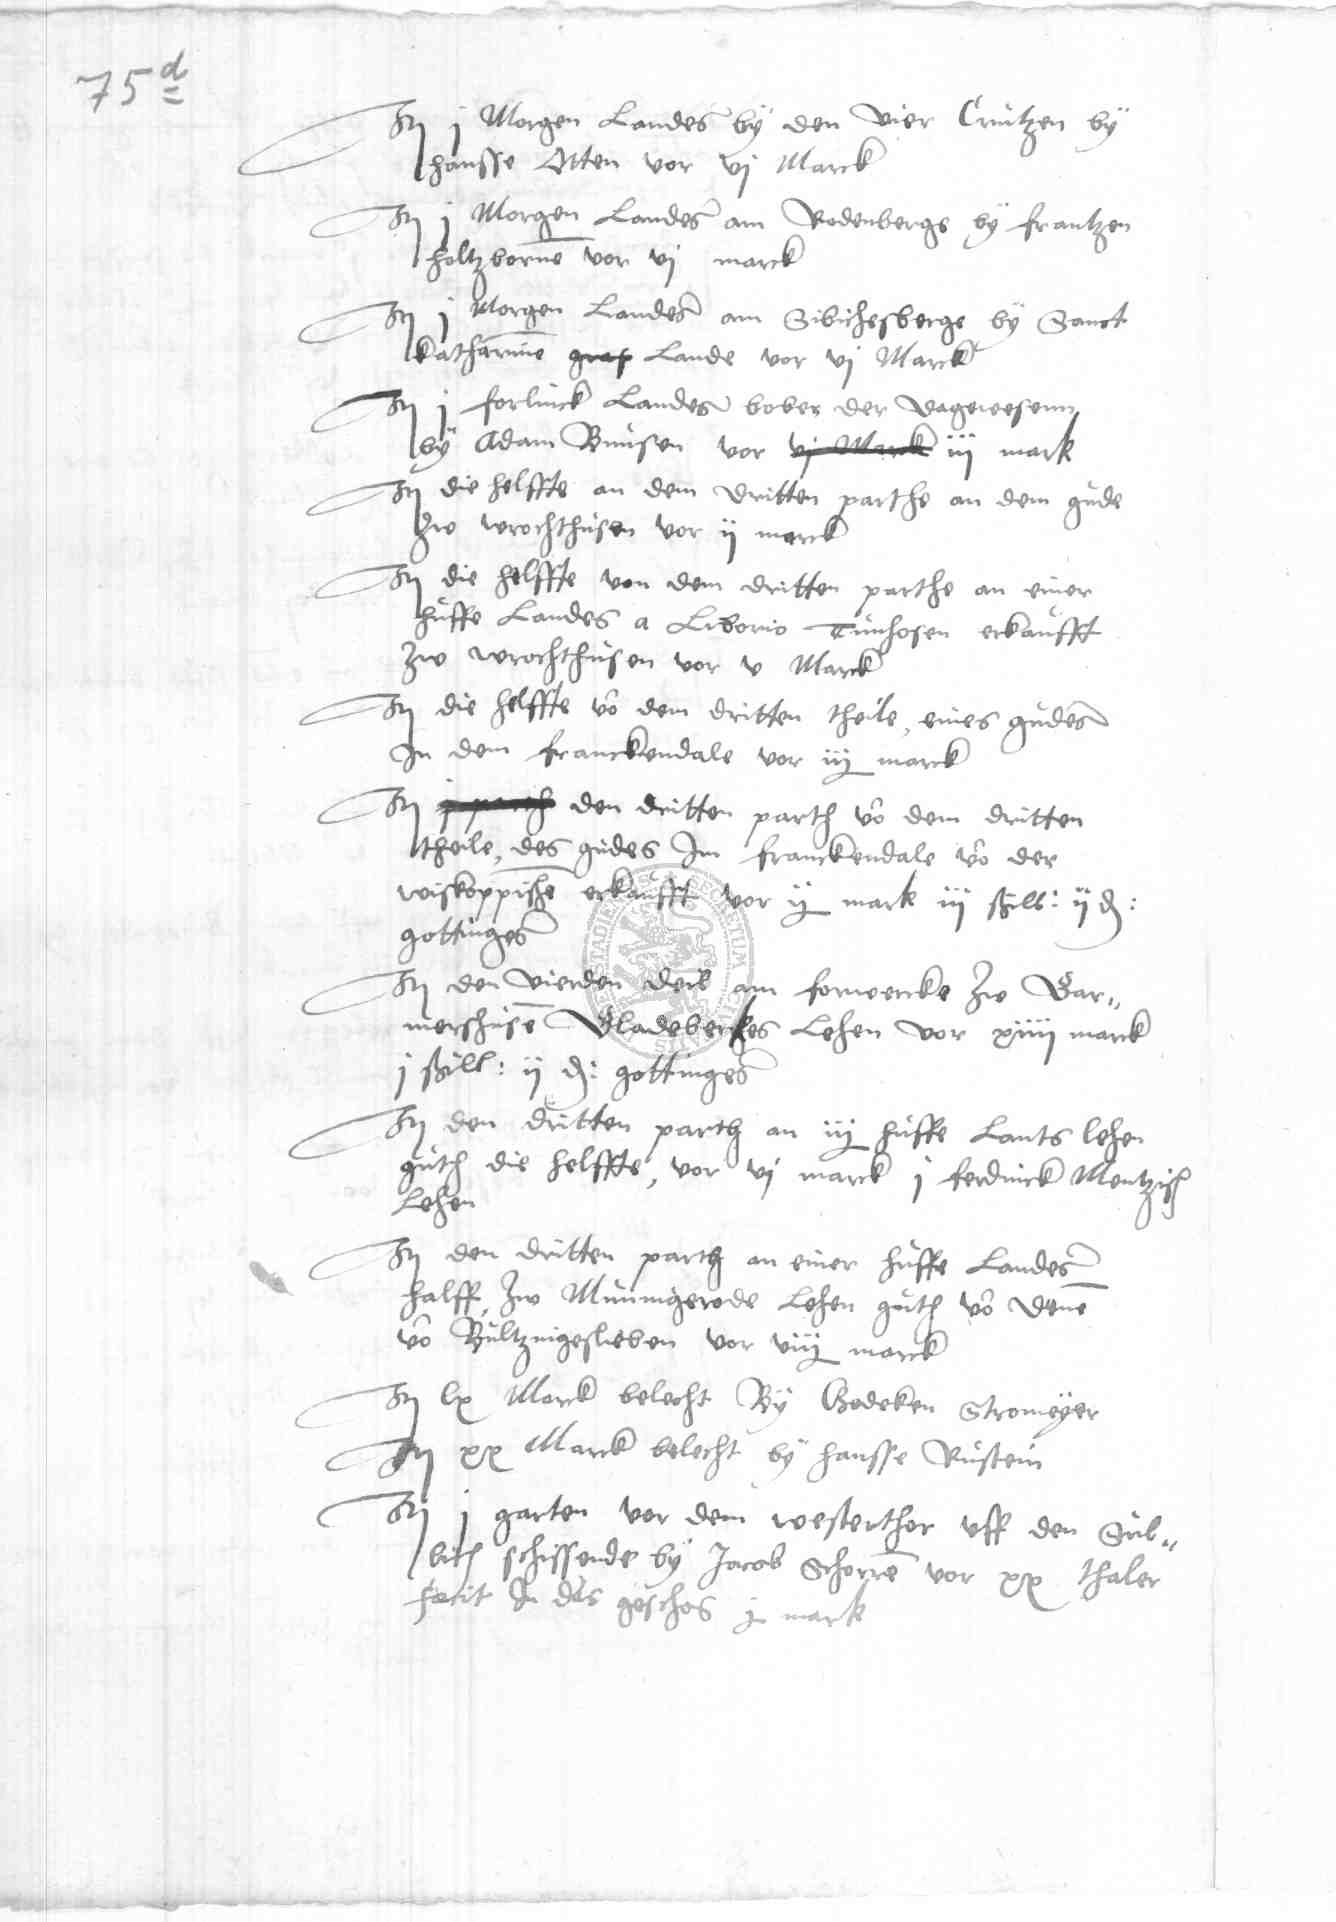 75 d
It j Morgen Landes by den vier Crutzen by
hansse Otten vor vj Marck
It j Morgen Landes am Rodenberge by frantzen
holtzborne vor vj marck
It j Morgen Landes am Sibichesberge by Sanct
Katharine Lande vor vj Marck
It j forlinck Landes boben der Dagewesenn
by Adam Bunsen vor vj Marck iij mark
It die helffte an dem dritten parthe an dem gude
Zw wrochthusen vor ij marck
It die helffte von dem dritten parthe an einer
huffe Landes a Liborio Tunhosen erkaufft
Zw wrochthusen vor v Marck
It die helffte vō dem dritten theile, eines gudes
In dem franckendale vor iij marck
It den dritten parth vō dem dritten
theile, des gudes Im franckendale vō der
wiskoppische erkaufft vor ij mark iij ßill: ij d:
gottinges
It den vierden deil am forwercke Zw Bar=
mershusē Bladebeckes Lehen vor xiiij marck
j ßill: ij d: gottinges
It den dritten parth an iij huffe Lants lehen
guth die helffte, vor vj marck j ferdinck Mentzisch
Lehen
It den dritten parth an einer huffe Landes
halff, Zw Minnigerode Lehen guth vō denē
vō Bultzingesleben vor viij marck
It lx Marck belecht By Godeken Stromeyer
It xx Marck belecht by hansse Rustein
It j garten vor dem westerthor vff den Sul=
bich schissende by Jacob Schorrē vor xx thaler
facit In das geschos mark